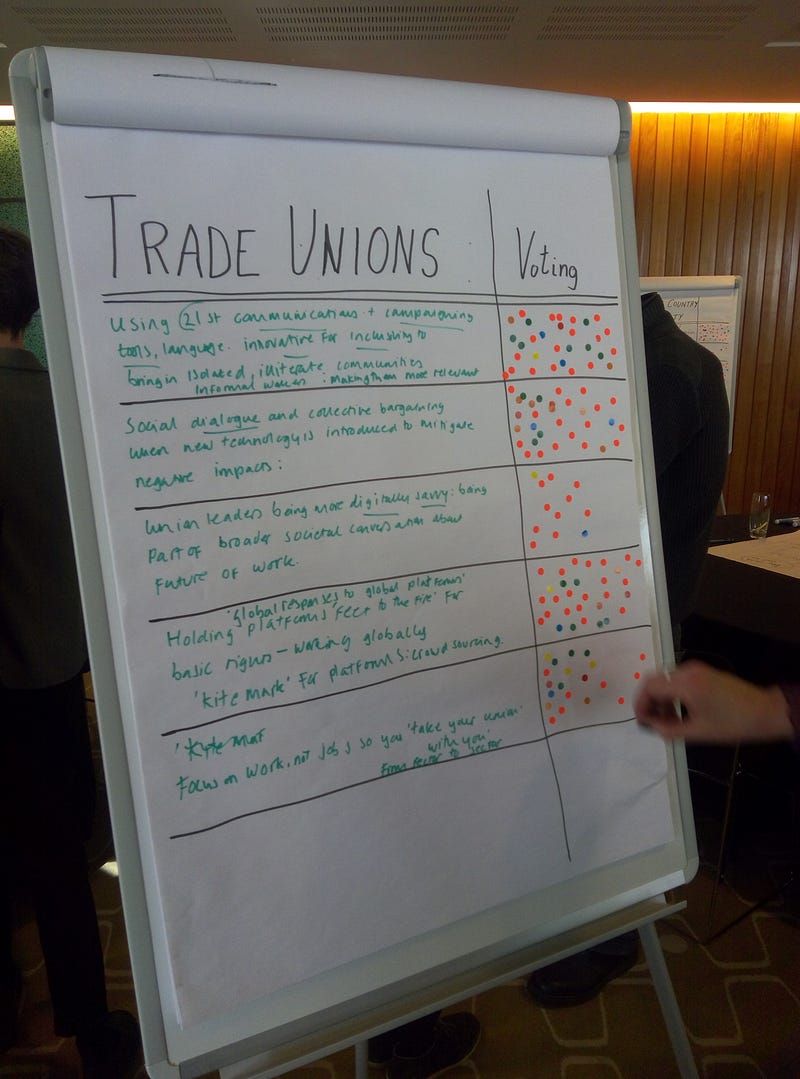 TRADE UNIONS
Voting
Using 21st communications + campaigning
tools, language. innovative for inclusivity to
bring in isolated, illiterate communities
Informal workers : making them more relevant
Social dialogue and collective bargaining
when new technology is introduced to mitigate
negative impacts:
Union leaders being more digitally savvy: being
part of broader societal conversation about
future of work.
'global responses to global platforms'
Holding platforms 'feet to the fire' for
basic rights - working globally
'kite mark' for platforms: crowd sourcing.
'Kyte
Focus on work, not jobs so you 'take your union
with you'
from sector to sector
COUNTRY